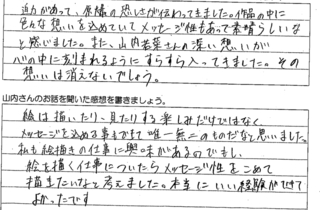 迫力があって、原爆の恐しさが伝わってきました。作品の中に
色々な想いを込めていてメッセージ性もあって素晴らしいな
と感じました。また、山内若菜さんの深い想いが
心の中に刻まれるようにすらすら入ってきました。その
想いは消えないでしょう。
山内さんのお話を聞いた感想を書きましょう。
絵は描いたり、見たりする楽しみだけではなく
メッセージを込める事もできて唯一無二のものだなと思いました。
私も絵描きの仕事に興味があるのでもし、
絵を描く仕事についたらメッセージ性をこめて
描きたいなと考えました。本当にいい経験ができて
よかったです